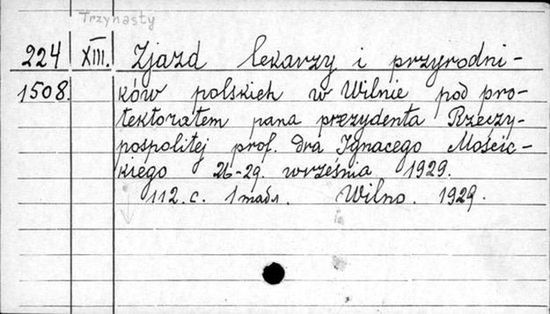 Trzynasty
224 XIII. Zjazd lekarzy i przyrodni-
1508. ków polskich w Wilnie pod pro-
tektoratem pana prezydenta Rzeczy-
pospolitej prof. dra Ignacego Mościc-
kiego 26-29. września 1929.
112. c. Wilno. 1929.